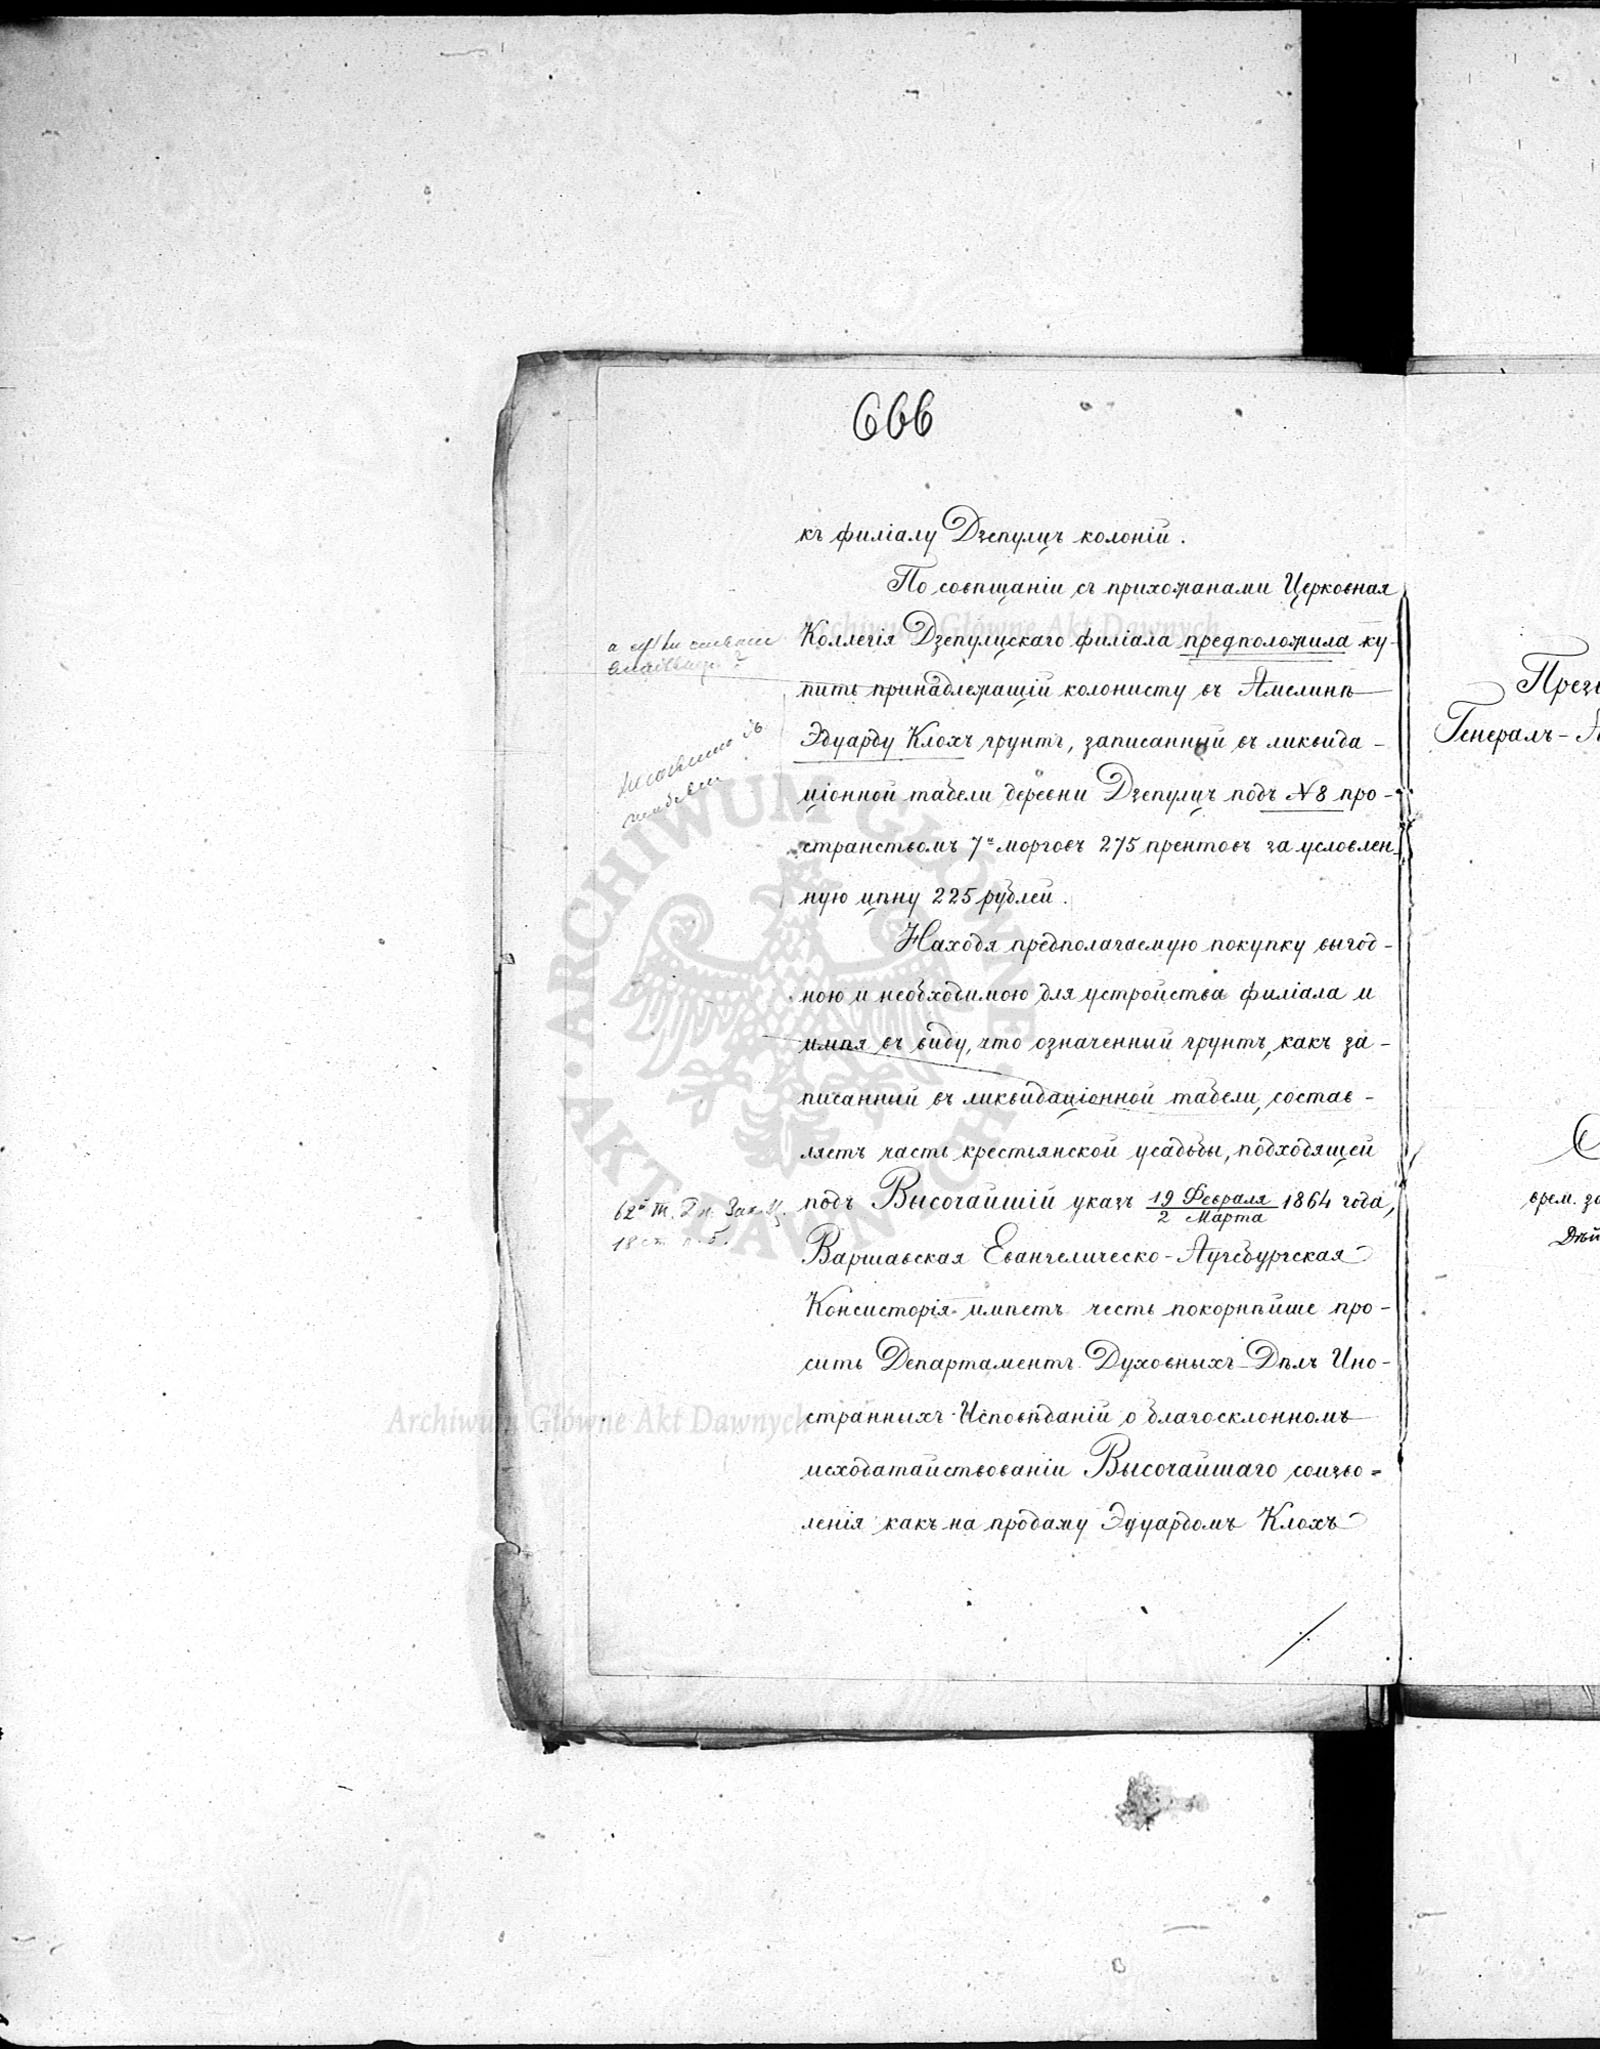 666
къ филіалу Дзепулць колоній.
По совѣщаніи съ прихожанами Церковная
Коллегія Дзепулцскаго филіала предположила ку-
пить принадлежащій колонисту въ Амелинѣ
Эдуарду Клохъ грунтъ, записанный въ ликвида-
ціонной табели деревни Дзепулць подъ №8 про-
странствомъ 7и морговъ 275 прентовъ за условлен-
ную цѣну 225 рублей.
Находя предполагаемую покупку выгод-
ною и необходимою для устройства филіала и
имѣя въ виду, что означенный грунтъ, какъ за-
писанный въ ликвидаціонной табели, состав-
ляетъ часть крестьянской усадьбы, подходящей
подъ Высочайшій указъ 19 Февраля / 2 Марта 1864 года,
Варшавская Евангелическо-Аугсбургская
Консисторія имѣетъ честь покорнѣйше про-
сить Департаментъ Духовныхъ Дѣлъ Ино-
странныхъ Исповѣданій о благосклонномъ
исходатайствованіи Высочайшаго соизво=
ленія какъ на продажу Эдуардомъ Клохъ
18 ст. п. 5.
През
Генералъ-А
врем. за
Дѣй
ARCHIWUM GŁÓWNE AKT DAWNYCH
Archiwum Główne Akt Dawnych
Archiwum Główne Akt Dawnych